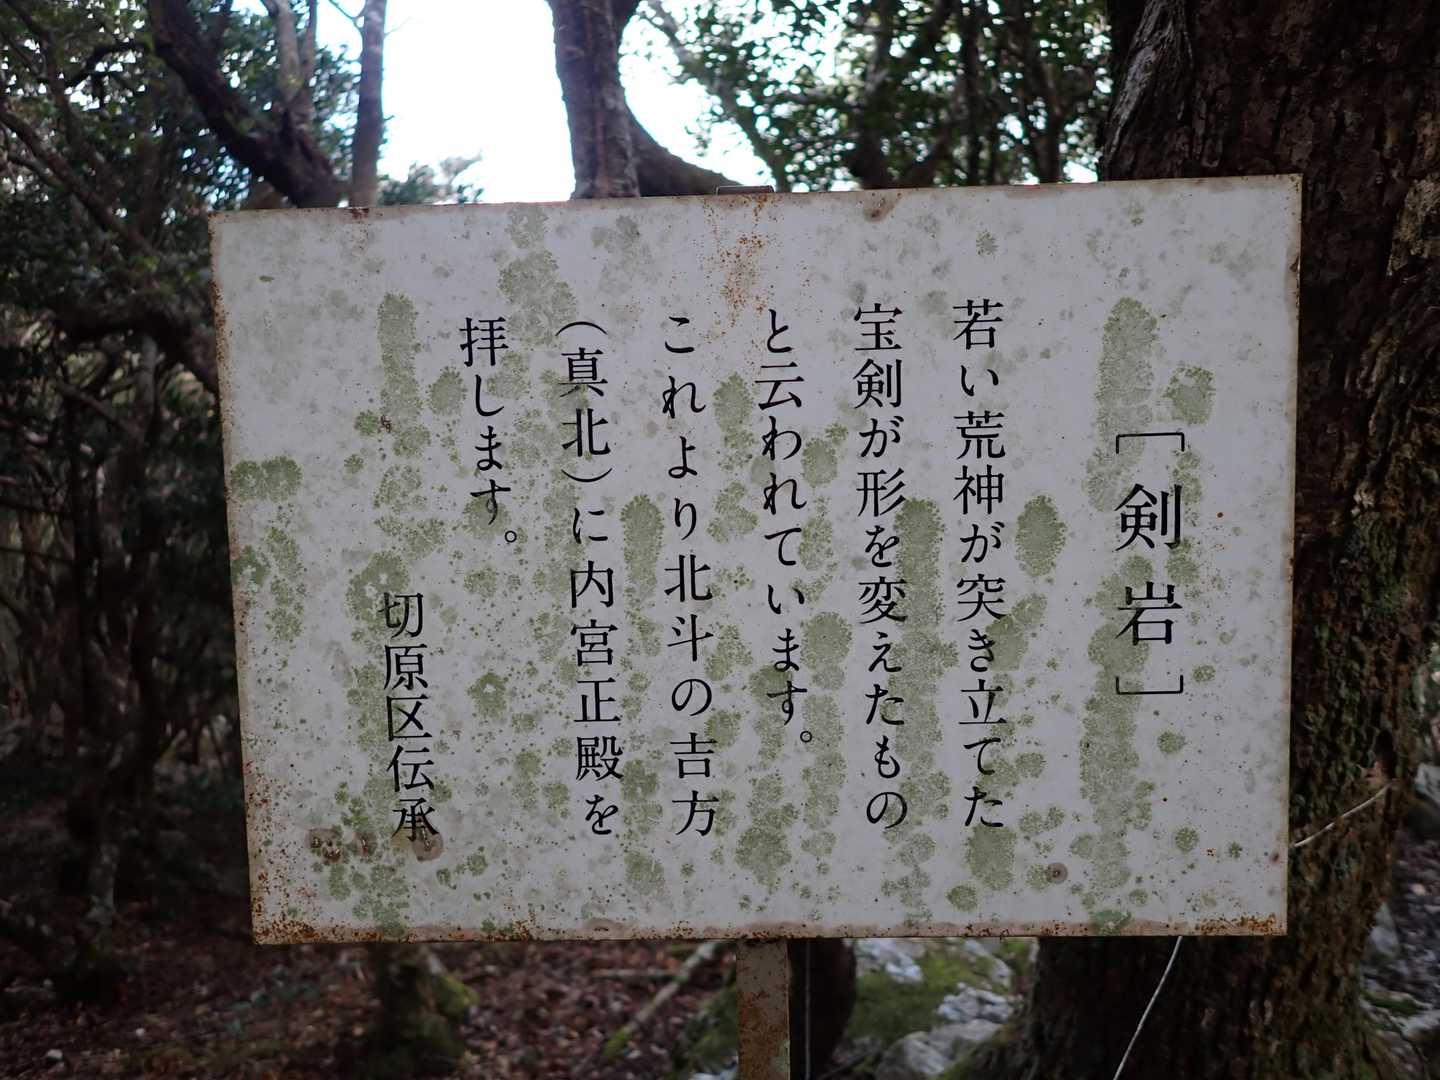 ［剣岩］
若い荒神が突き立てた
宝剣が形を変えたもの
と云われています。
これより北斗の吉方
（真北）に内宮正殿を
拝します。
切原区伝承